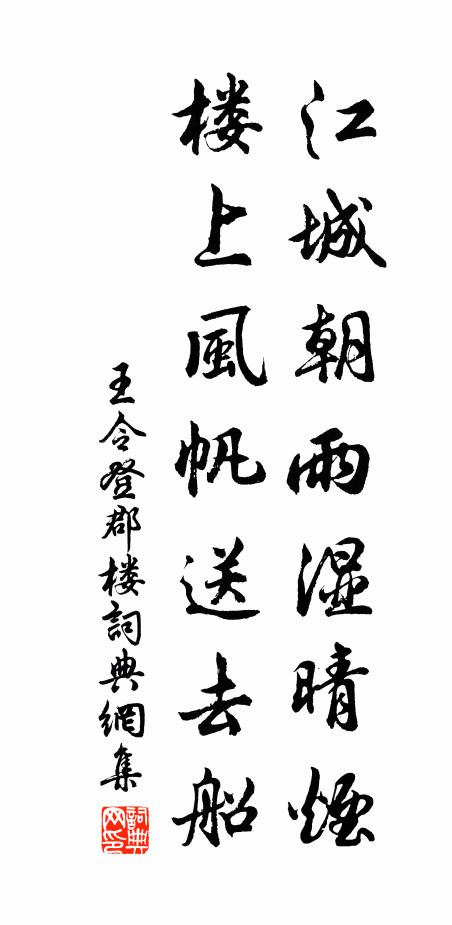 江城朝雨湿晴烟
楼上風帆送去船
王令登郡楼詞典網集
詞典网印